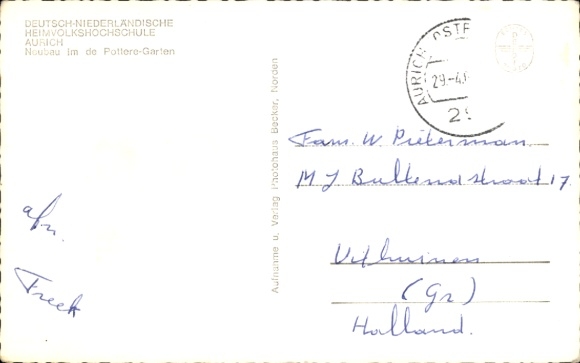 DEUTSCH-NIEDERLÄNDISCHE
HEIMVOLKSHOCHSCHULE
AURICH
Neubau im de Pottere-Garten
Aufnahme u. Verlag Photohaus Becker, Norden
AURICH OSTF
29.-4.
Fam. W. Pieterman
M J Bultenastraat 17
Uithuizen
(Gr)
Holland.
afz.
Freek